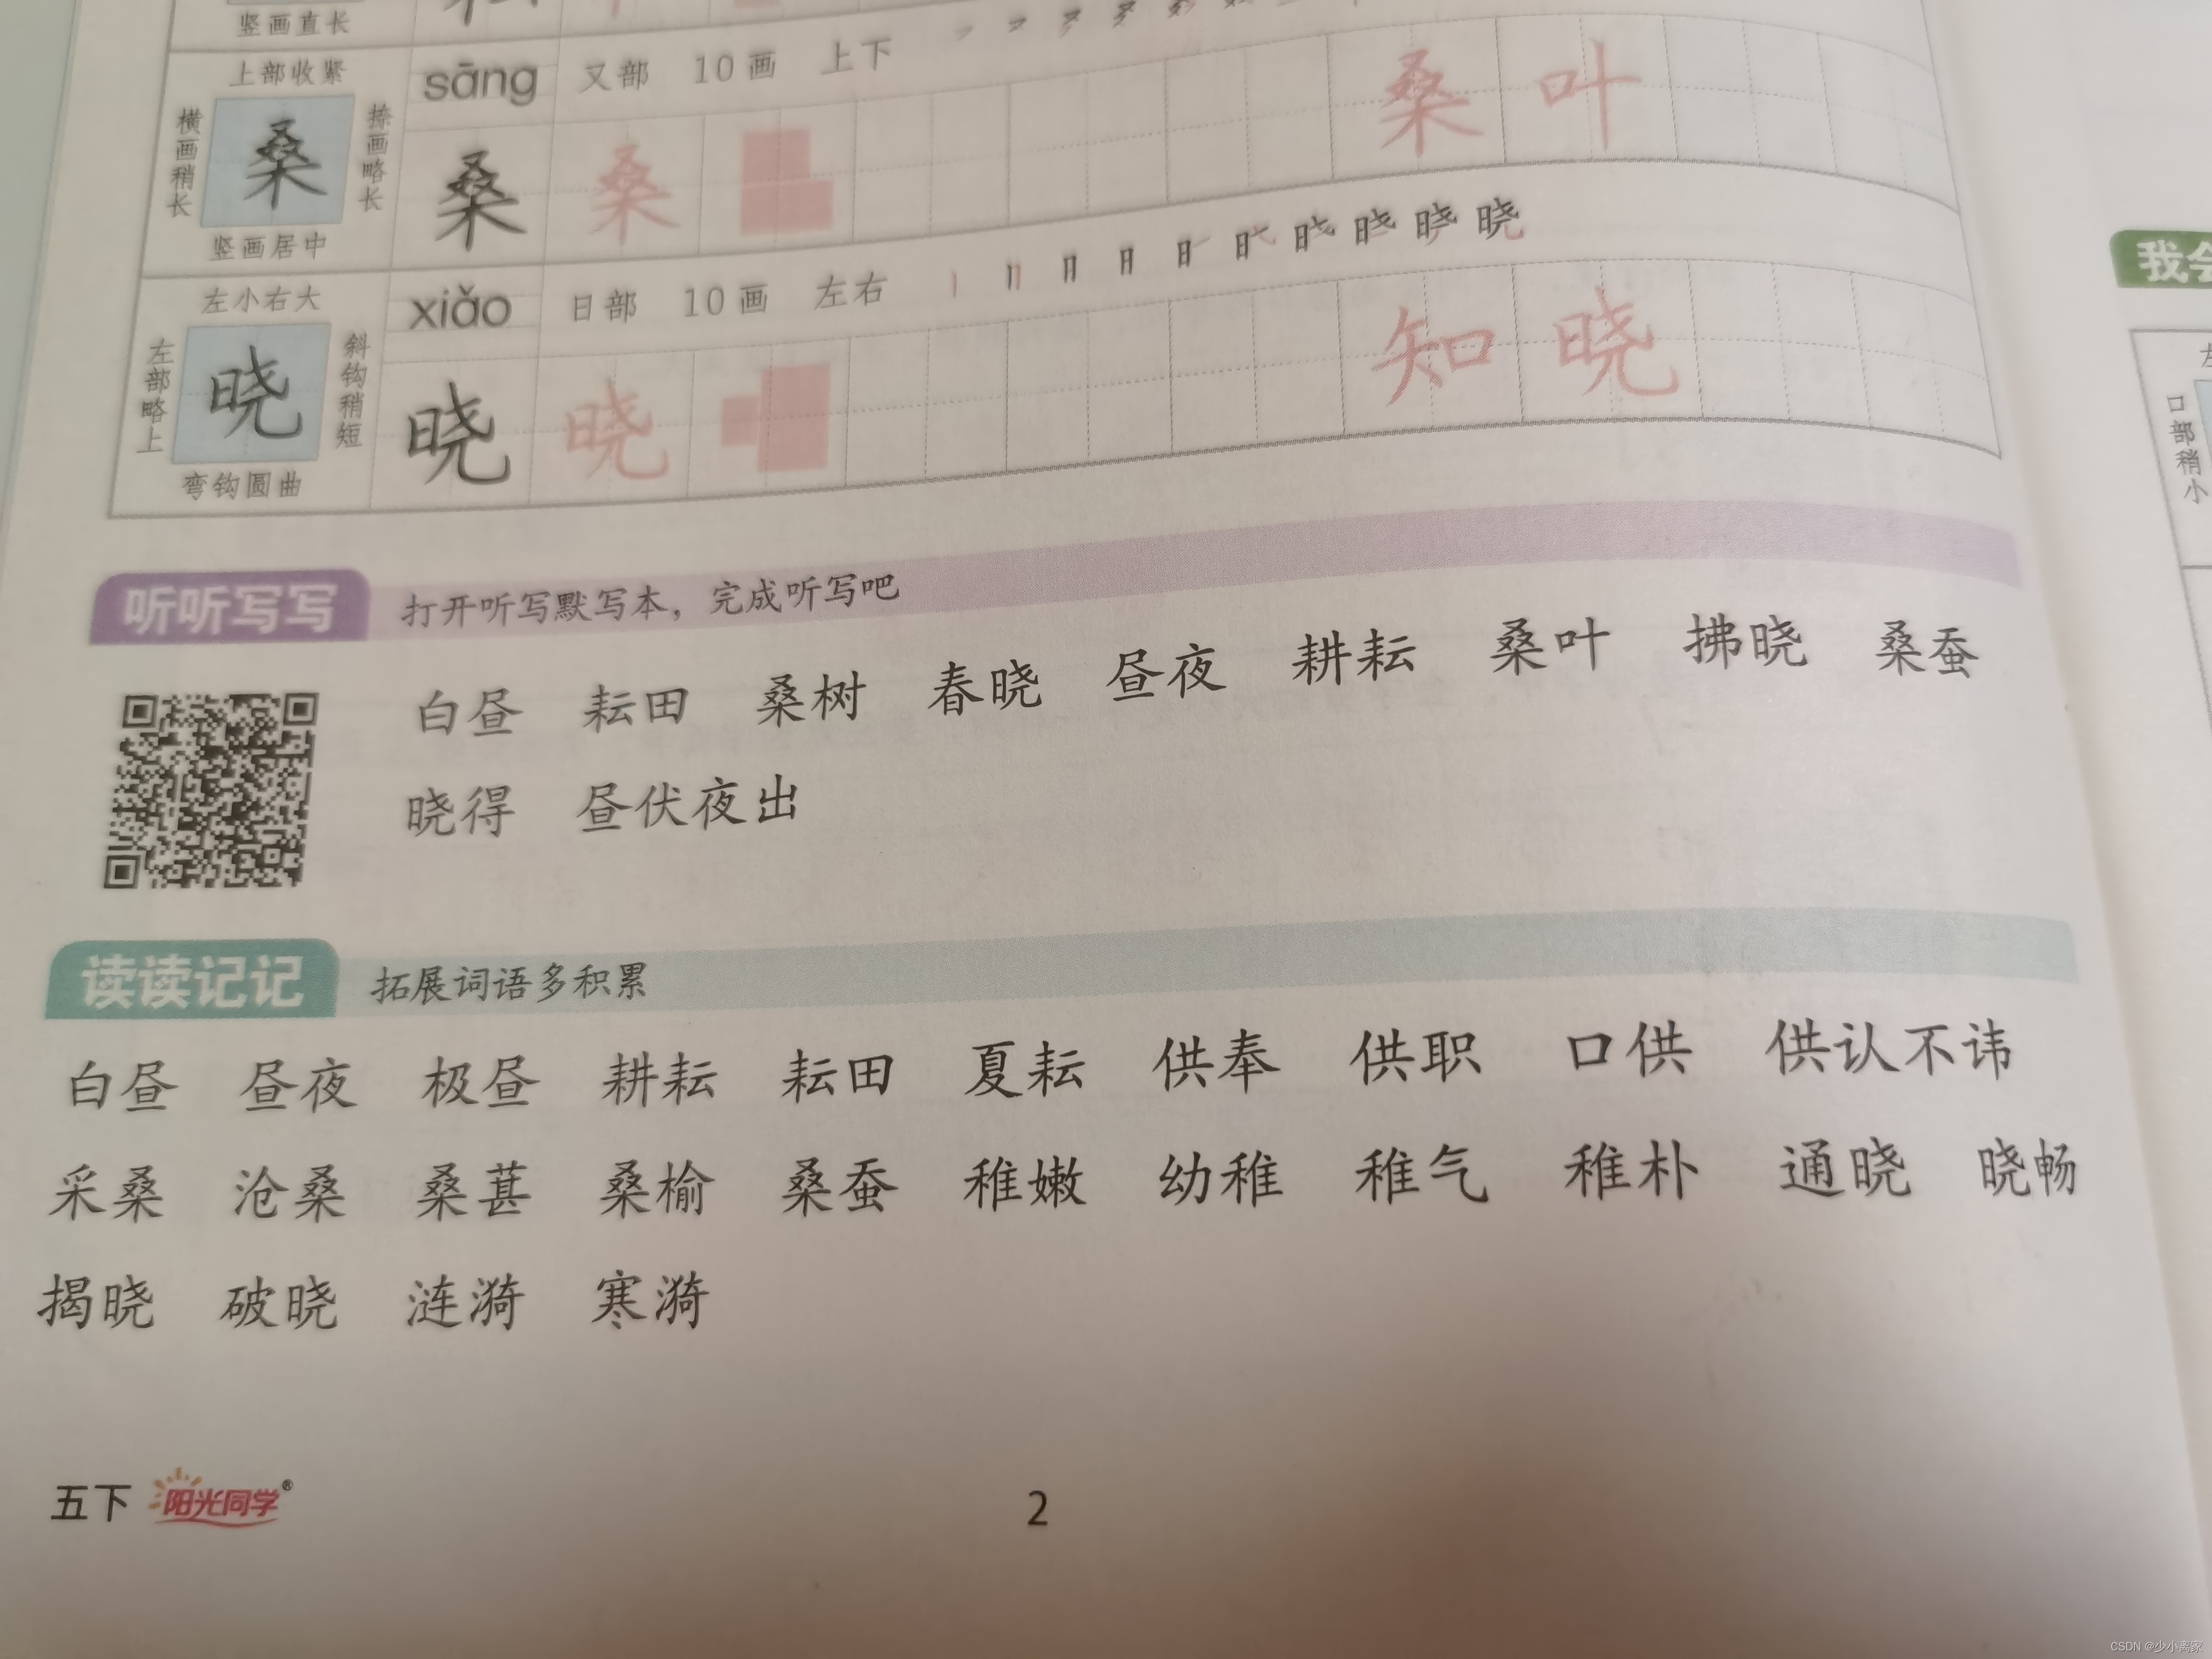 竖画直长
上部收紧
横画稍长
桑
捺画略长
竖画居中
sāng 又部 10画 上下
桑 桑 桑 叶
左小右大
左部略上
晓
斜钩稍短
弯钩圆曲
xiǎo 日部 10画 左右
晓 晓 知 晓
听听写写 打开听写默写本，完成听写吧
白昼 耘田 桑树 春晓 昼夜 耕耘 桑叶 拂晓 桑蚕
晓得 昼伏夜出
读读记记 拓展词语多积累
白昼 昼夜 极昼 耕耘 耘田 夏耘 供奉 供职 口供 供认不讳
采桑 沧桑 桑葚 桑榆 桑蚕 稚嫩 幼稚 稚气 稚朴 通晓 晓畅
揭晓 破晓 涟漪 寒漪
五下 阳光同学®
2
我会
口部稍小
CSDN @少小离家